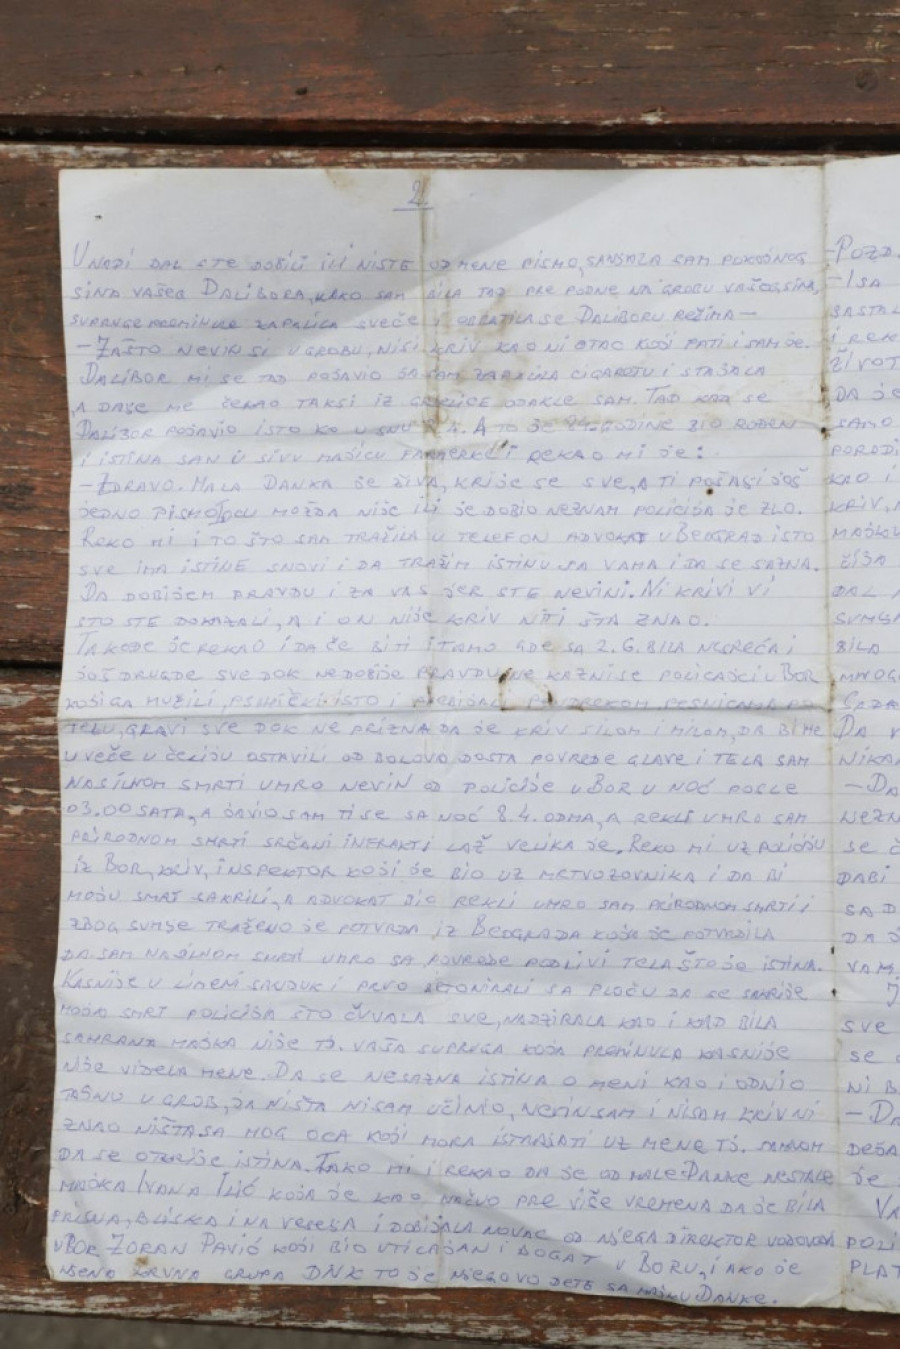 2.
DAL STE DOBILI ILI NISTE OD MENE PISMO, SANJALA SAM POKOJNOG
SINA VAŠEG DALIBORA, KAKO SAM BILA TAD PRE PODNE NA GROBU VAŠEG SINA,
SUPRUGE PREMINULE ZAPALILA SVEĆE I OBRATILA SE DALIBORU REČIMA —
— ZAŠTO NEVIN SI U GROBU, NISI KRIV KAO NI OTAC KOJI PATI I SAM JE.
DALIBOR MI SE TAD POJAVIO JA SAM ZAPALILA CIGARETU I STAJALA
A DALJE ME ČEKAO TAKSI IZ ODAKLE SAM. TAD KAD SE
DALIBOR POJAVIO ISTO KO U SNU 8.4. A TO JE GODINE BIO ROĐEN
I ISTINA SAN U SIVU MAJICU I REKAO MI JE:
— ZDRAVO. MALA DANKA JE ŽIVA, KRIJE SE SVE, A TI POŠALJI JOŠ
JEDNO PISMO OCU MOŽDA NIJE ILI JE DOBIO NEZNAM POLICIJA JE ZLO.
REKO MI I TO ŠTO SAM TRAŽILA U TELEFON ADVOKAT U BEOGRAD ISTO
SVE IMA ISTINE SNOVI I DA TRAŽIM ISTINU SA VAMA I DA SE SAZNA.
DA DOBIJEM PRAVDU I ZA VAS JER STE NEVINI. NI KRIVI VI
STO STE DOKAZALI, A I ON NIJE KRIV NITI ŠTA ZNAO.
TAKOĐE JE REKAO I DA ĆE BITI I TAMO GDE SA 2.6. BILA NESREĆA I
JOŠ DRUGDE SVE DOK NE DOBIJE PRAVDU, NE KAZNI SE POLICAJCI U BOR
KOJI GA MUČILI, PSIHIČKI ISTO I PENDREKOM PESNICAMA PO
TELU, GLAVI SVE DOK NE PRIZNA DA JE KRIV SILOM I MILOM, DA BI ME
UVEČE U ĆELIJU OSTAVILI OD BOLOVA DOSTA POVREDE GLAVE I TELA SAM
NASILNOM SMRTI UMRO NEVIN OD POLICIJE U BOR U NOĆ POSLE
03.00 SATA, A JAVIO SAM TI SE SA NOĆ 8.4. ODMA, A REKLI UMRO SAM
PRIRODNOM SMRTI SRČANI INFRAKTI LAŽ VELIKA JE. REKO MI UZ POLICIJU
IZ BOR, KRIV, INSPEKTOR KOJI JE BIO UZ MRTVOZOVNIKA I DA BI
MOJU SMRT SAKRILI, A ADVOKAT BIO REKLI UMRO SAM PRIRODNOM SMRTI I
ZBOG SUMNJE TRAŽENO JE POTVRDA IZ BEOGRADA KOJA JE POTVRDILA
DA SAM NASILNOM SMRTI UMRO SA POVREDE PODLIVI TELA ŠTO JE ISTINA.
KASNIJE U LIMENI SANDUK I PRVO SA PLOČU DA SE SAKRIJE
MOJA SMRT POLICIJA ŠTO ČUVALA SVE, NADZIRALA KAO I KAD BILA
SAHRANA MAJKA NIJE TJ. VAŠA SUPRUGA KOJA PREMINULA KASNIJE
NIJE VIDELA MENE. DA SE NESAZNA ISTINA O MENI KAO I ODNIO
TAJNU U GROB, JA NIŠTA NISAM UČINIO, NEVIN SAM I NISAM KRIV NI
ZNAO NIŠTA SA MOG OCA KOJI MORA ISTRAJATI UZ MENE TJ. SAMNOM
DA SE OTKRIJE ISTINA. TAKO MI I REKAO DA JE OD MALE DANKE NESTALE
MAJKA IVANA ILIĆ KOJA JE KAO PRE VIŠE VREMENA DA JE BILA
PRISNA, BLISKA I NA VESELJA I DOBIJALA NOVAC OD NJEGA DIREKTOR VODOVODA
U BOR ZORAN PAVIĆ KOJI BIO UTICAJAN I BOGAT U BORU, I AKO JE
NJENA KRVNA GRUPA DNK TO JE NJEGOVO DETE SA MAJKU DANKE.
-POZD
- I SA
SASTAL
I REK
ŽIVOT
DA JE
SAMO
PORODI
KAO I
KRIV,
MAJKU
ČIJA
DAL
SUMNJ
BILA
MNOGO
DA
NIKA
-DA
NEZN
SE
DABI
SAD
DA
VAM
SVE
SE
NI B
-DA
DEŠA
JE
VA
POLI
PLAT